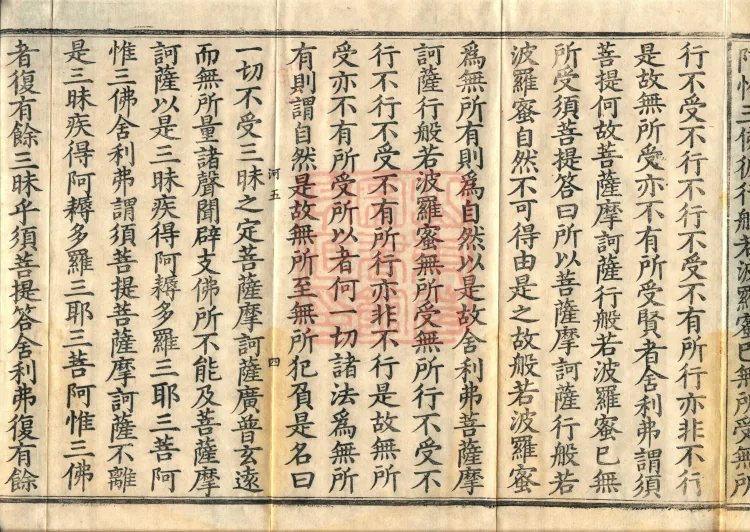 行般若波羅蜜已無所受無所
行不受不行不行不受不有所行亦非不行
是故無所受亦不有所受賢者舍利弗謂須
菩提何故菩薩摩訶薩行般若波羅蜜已無
所受須菩提答曰所以菩薩摩訶薩行般若
波羅蜜自然不可得由是之故般若波羅蜜
爲無所有則爲自然以是故舍利弗菩薩摩
訶薩行般若波羅蜜無所受無所行不受不
行不行不受不有所行亦非不行是故無所
受亦不有所受所以者何一切諸法爲無所
有則謂自然是故無所至無所犯負是名曰
河五 四
一切不受三昧之定菩薩摩訶薩廣普玄遠
而無所量諸聲聞辟支佛所不能及菩薩摩
訶薩以是三昧疾得阿耨多羅三耶三菩阿
惟三佛舍利弗謂須菩提菩薩摩訶薩不離
是三昧疾得阿耨多羅三耶三菩阿惟三佛
者復有餘三昧乎須菩提答舍利弗復有餘